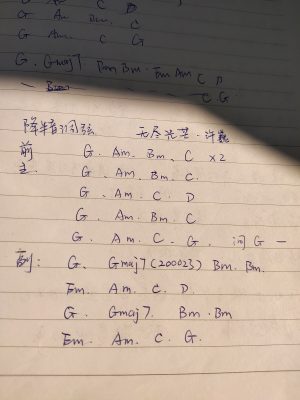 G Am C D
G Am Bm C
G Am C G
G. Gmaj7 Bm Bm. Em Am C D
C G
降半音调弦 无尽光芒·许巍
前 G. Am. Bm. C ×2
主. G. Am. Bm. C.
G. Am. C. D
G. Am. Bm. C
G. Am. C. G. 间 G 一
副: G. Gmaj7(200023) Bm. Bm.
Em. Am. C. D.
G. Gmaj7. Bm. Bm
Em. Am. C. G.